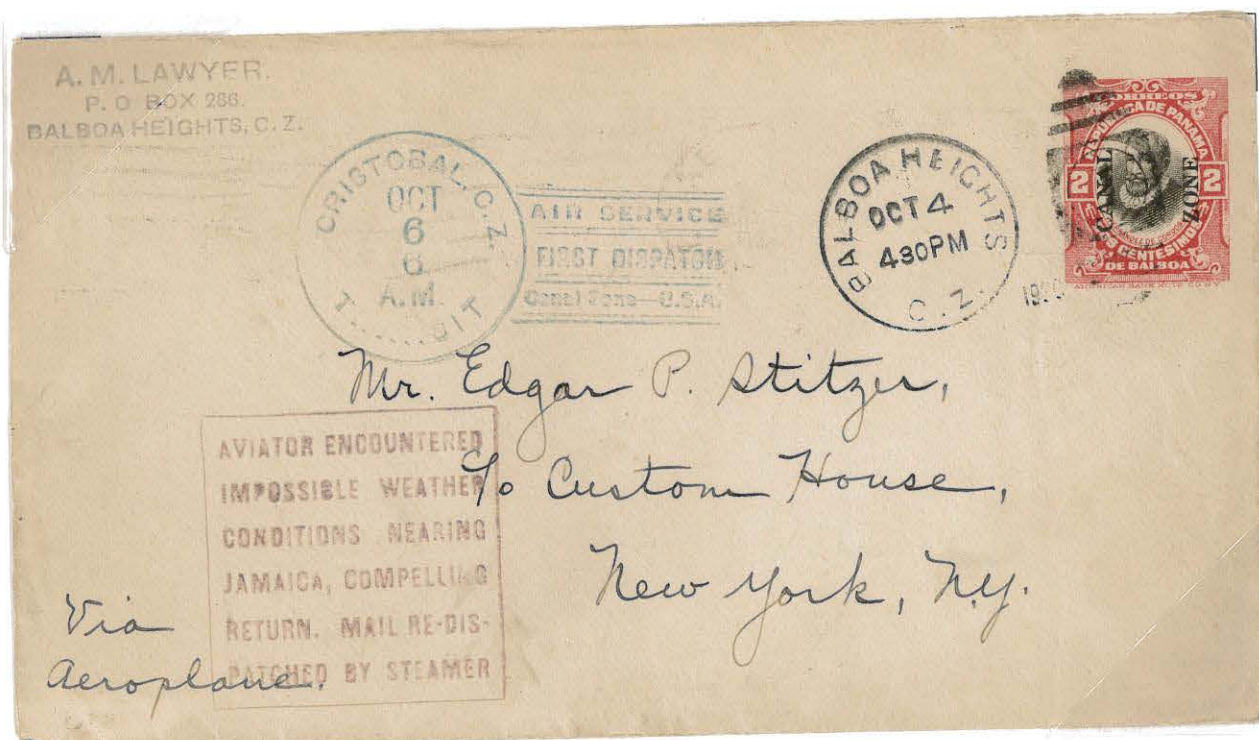 A. M. LAWYER.
P. O BOX 286.
BALBOA HEIGHTS, C. Z.
CRISTOBAL, C. Z.
OCT
6
6
A.M.
AIR SERVICE
FIRST DISPATCH
Canal Zone—U.S.A.
BALBOA HEIGHTS
OCT 4
430PM
C. Z.
CORREOS
REPUBLICA DE PANAMA
2 2
CANAL ZONE
DOS CENTESIMOS
DE BALBOA
Mr. Edgar P. Stitzer,
c/o Custom House,
New York, N.Y.
AVIATOR ENCOUNTERED
IMPOSSIBLE WEATHER
CONDITIONS NEARING
JAMAICA, COMPELLING
RETURN. MAIL RE-DIS-
PATCHED BY STEAMER
Via
Aeroplane.